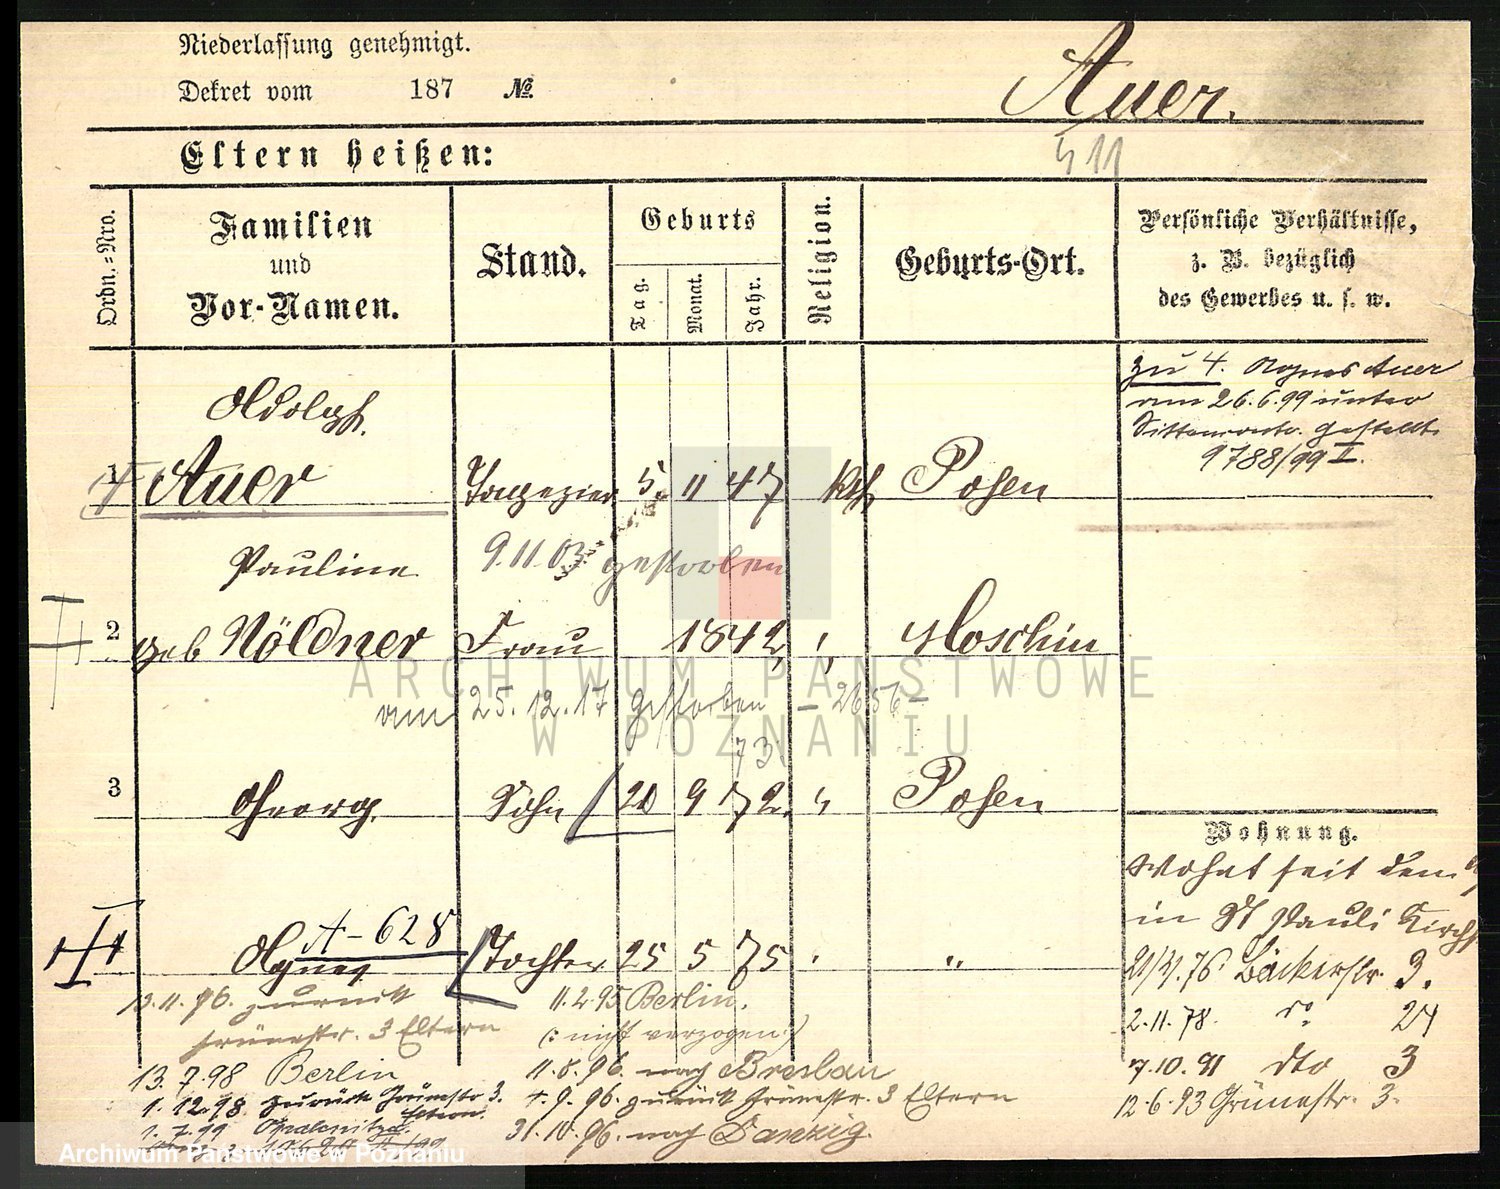 Niederlassung genehmigt.
Dekret vom 187 №.
Auer.
511
Eltern heißen:
Ordn.=Nro.
Familien
und
Vor-Namen.
Stand.
Geburts
Tag.
Monat.
Jahr.
Religion.
Geburts-Ort.
Persönliche Verhältnisse,
z. B. bezüglich
des Gewerbes u. s. w.
zu 4. Agnes Auer
am 26.6.99 unter
gestellt.
9788/99 I.
Adolph
1 Auer Tapezier 5. 11 47 kth Posen
9.11.03 gestorben
Pauline
2 geb Nöldner Frau 1842 " Moschin
am 25.12.17 gestorben – 2656 –
73
3 Georg. Sohn 9 72. " Posen
A-628
Agnes Tochter 25 5 75 " "
13.11.96. zurück
Grünestr. 3 Eltern
11.2.95 Berlin.
(: nicht verzogen :)
13.7.98 Berlin
11.8.96. nach Breslau
1.12.98 zurück Grünestr 3.
Eltern.
9.96. zurück Grünestr. 3 Eltern
1.7.99
31.10.96. nach Danzig.
Wohnung.
Wohnt seit dem
in St Pauli Kirchst
76. Bäckerstr. 3.
2.11.78. do 24
7.10.91 dto 3
12.6.93 Grünestr. 3.
ARCHIWUM PAŃSTWOWE
W POZNANIU
Archiwum Państwowe w Poznaniu